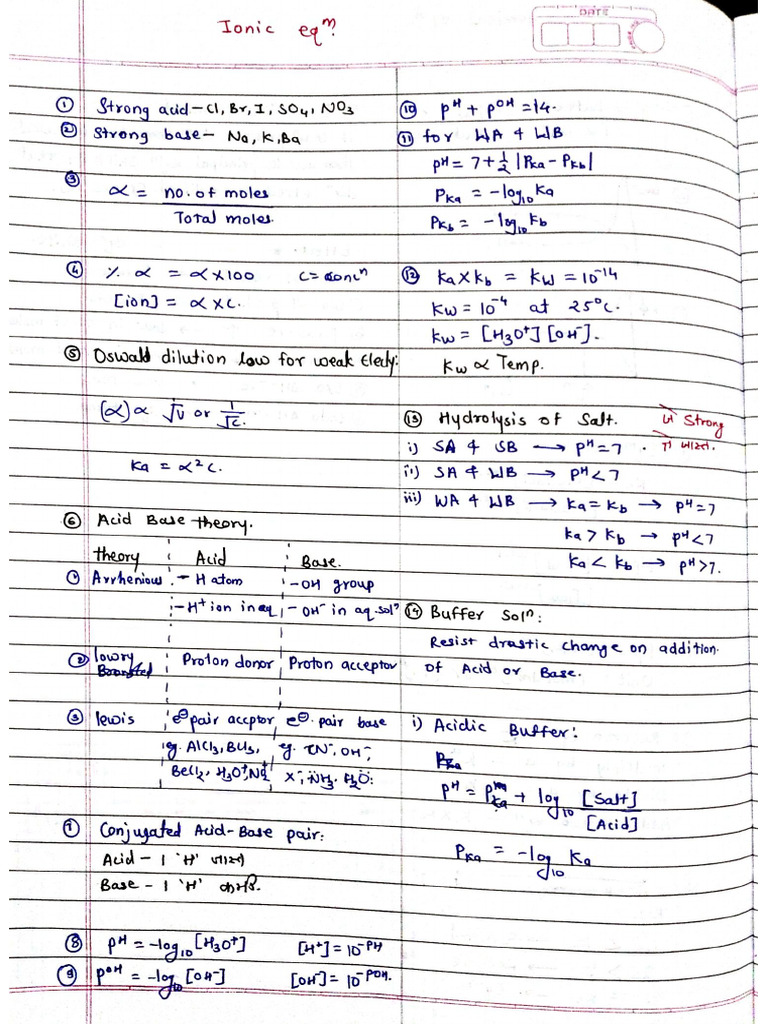 DATE
Ionic eqⁿ:
① Strong acid – Cl, Br, I, SO₄, NO₃
② Strong base – Na, K, Ba
③ α = no. of moles
Total moles.
④ % α = α × 100 c = concⁿ
[ion] = α × c.
⑤ Oswald dilution low for weak Elecly:
(α) α √V or 1/√c.
Ka = α²c.
⑥ Acid Base theory.
theory Acid Base.
① Arrhenious – H atom – OH group
– H⁺ ion in aq – OH⁻ in aq. solⁿ
② lowry Proton donor Proton acceptor
Bronsted
③ lewis e⊖ pair accptor e⊖ pair base
eg. AlCl₃, BCl₃, eg. CN⁻, OH⁻,
BeCl₂, H₃O⁺, X⁻, NH₃, H₂O:
⑦ Conjugated Acid-Base pair:
Acid – 1 'H' जास्त
Base – 1 'H' कमी.
⑧ pH = –log₁₀ [H₃O⁺] [H⁺] = 10⁻ᴾᴴ
⑨ pOH = –log₁₀ [OH⁻] [OH⁻] = 10⁻ᴾᴼᴴ.
⑩ pH + pOH = 14.
⑪ for WA & WB
pH = 7 + ½ |Pka – Pkb|
Pka = –log₁₀ Ka
Pkb = –log₁₀ Kb
⑫ Ka × Kb = Kw = 10⁻¹⁴
Kw = 10⁻⁴ at 25°C.
Kw = [H₃O⁺] [OH⁻].
Kw α Temp.
⑬ Hydrolysis of Salt. जे Strong
i) SA & SB → pH = 7 . ते जास्त.
ii) SA & WB → pH < 7
iii) WA & WB → Ka = Kb → pH = 7
Ka > Kb → pH < 7
Ka < Kb → pH > 7.
⑭ Buffer Solⁿ:
Resist drastic change on addition
of Acid or Base.
i) Acidic Buffer:
pH = Pka + log₁₀ [Salt]
[Acid]
Pka = –log₁₀ Ka